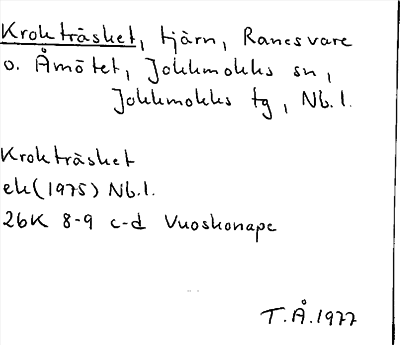 Krokträsket, tjärn, Ranesvare
o. Åmötet, Jokkmokks sn,
Jokkmokks tg, Nb.l.
Krokträsket
ek(1975) Nb.l.
26K 8-9 c-d Vuoskonape
T.Å.1977